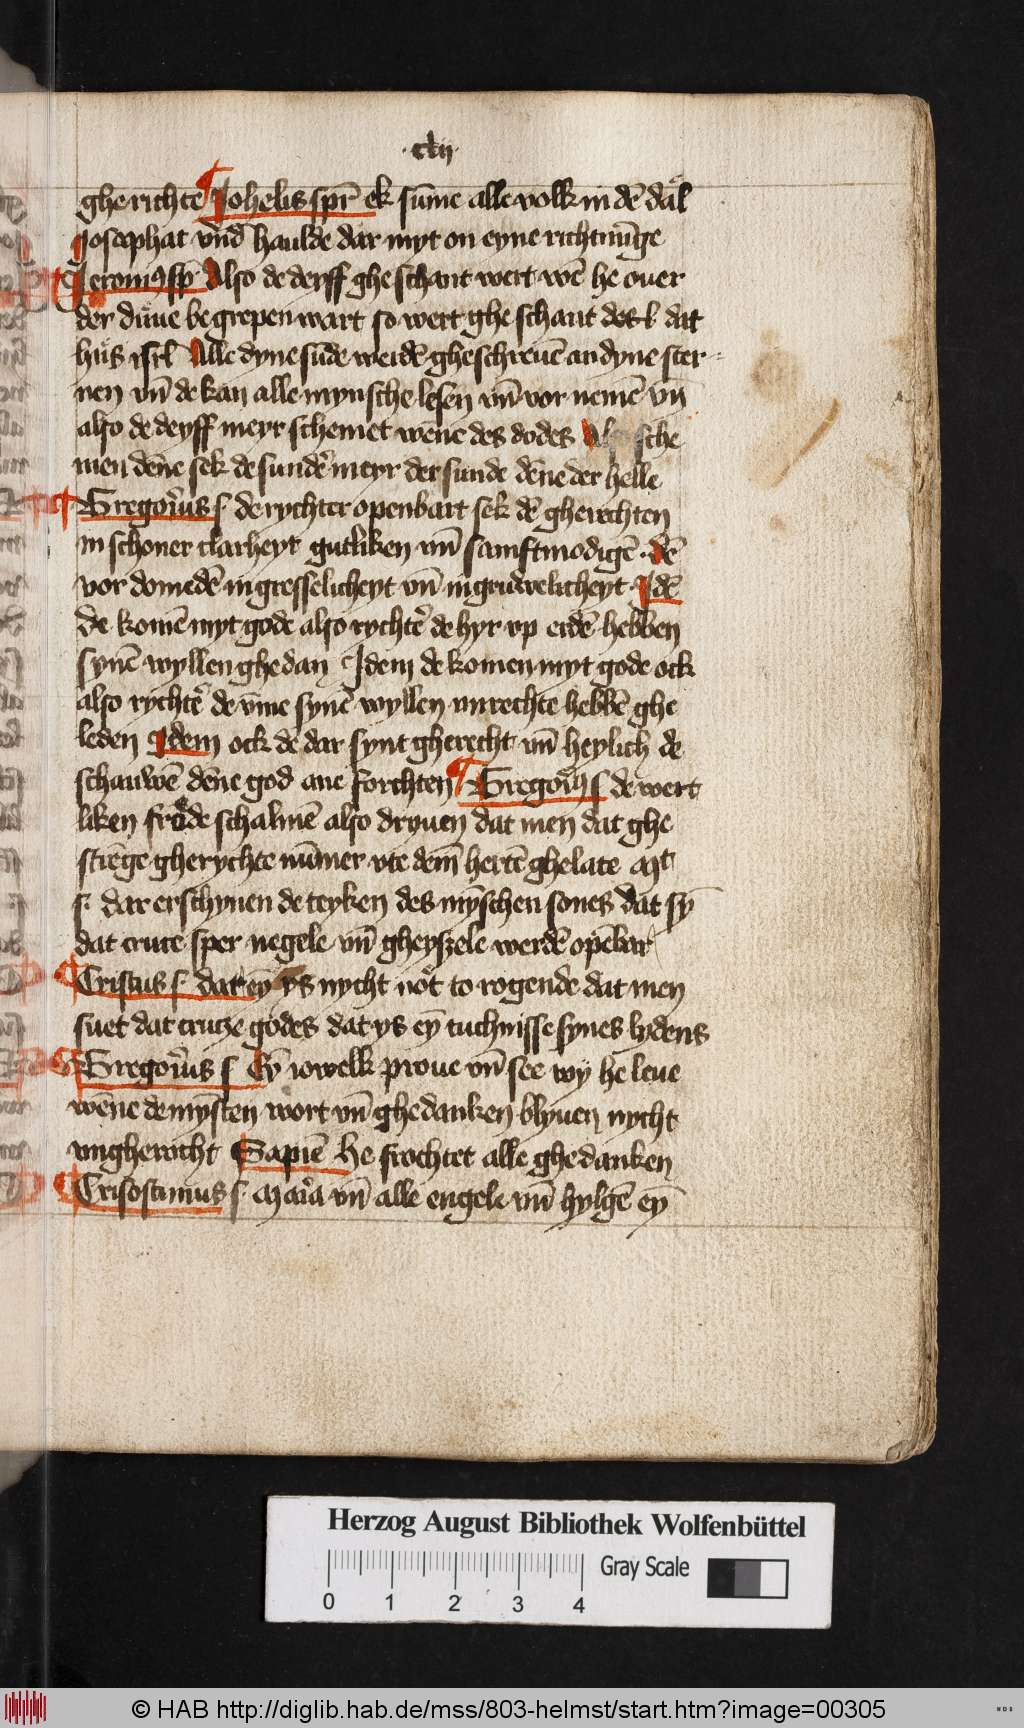 ·clij·
gherichte Johelis spr̄ ek sūme alle volk in dē dal
Josaphat vn̄d haulde dar myt on eyne richtnīge
Jeronim9 sp̄ Also de deyff gheschant wert wē he ouer
der duue begrepen wart so wert gheschant dat
hus isrl̄ Alle dyne sūde werdē ghescreuē an dyne ster
nen vn̄ de kan alle mynsche lesen vn̄ vor nemē vn̄
also de deyff meyr schemet wēne des dodes sche
men dēne sek de sundē meyr der sunde dēne der helle
Gregorius s̄ de rychter openbart sek dē gherechten
in schoner clarheyt gutliken vn̄ samftmodigē · dē
vor domedē in gresselicheyt vn̄ in gruwelicheyt · Idē
de komē myt gode also rychtē de hyr vp erdē hebben
synē wyllen ghedan Idem de komen myt gode ock
also rychtē de vm̄e synē wyllen vnrechte hebbē ghe
leden Idem ock de dar synt gherecht vn̄ heylich de
schauwē dēne god ane forchten Gregori9 s̄ de wert
liken frode schalmē also dryuen dat men dat ghe
stiēge gherychte nūmer vte dem̄ hertē ghelate Mt
s· dar erschynen de teyken des mȳschen sones dat sȳ
dat cruce sper negele vn̄ gheyszele werdē opēbar
Cristus s̄ dar eȳ ys nycht not to rogende dat men
suet dat crutze godes dat ys eȳ tuchnisse synes lydens
Gregorius s̄ Eȳ iowelk proue vn̄ see wy he leue
wēne de mȳsten wort vn̄ ghedanken blyuen nycht
vngherocht Sapiē He frochtet alle ghedanken
Crisostimus s· Maria vn̄ alle engele vn̄ hylgē eȳ
Herzog August Bibliothek Wolfenbüttel
Gray Scale
0 1 2 3 4
© HAB http://diglib.hab.de/mss/803-helmst/start.htm?image=00305